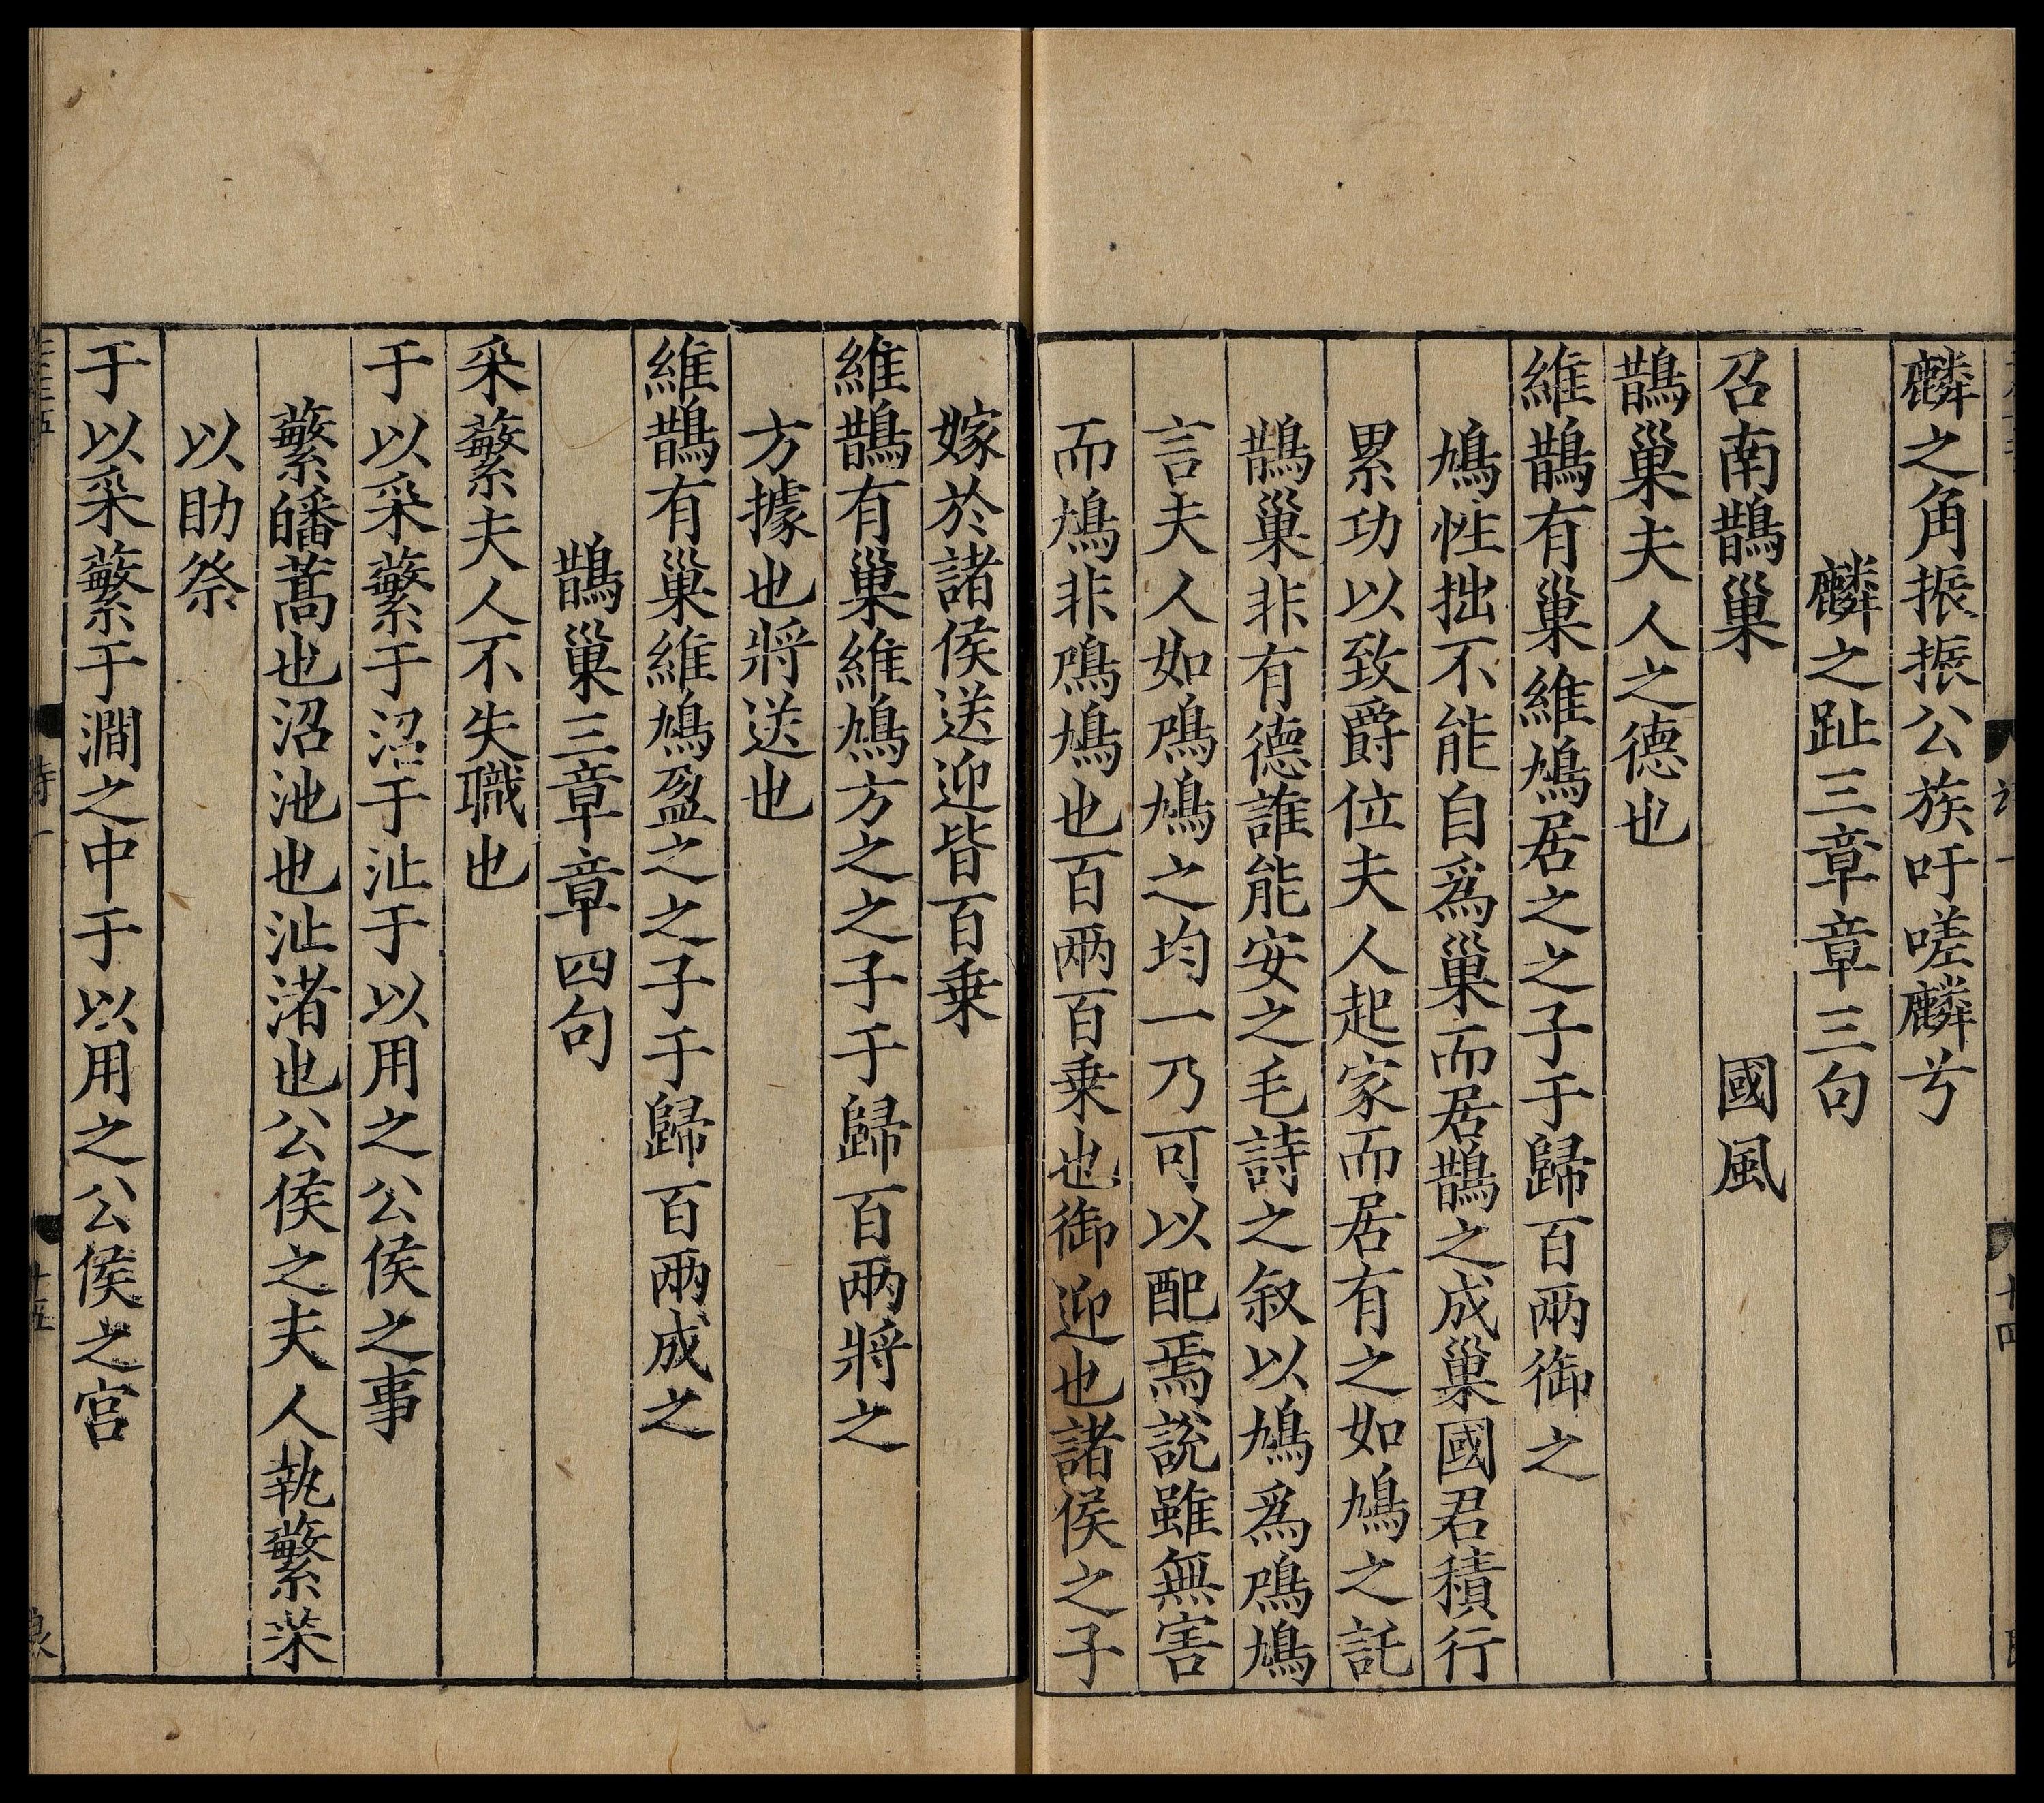 麟之角振振公族吁嗟麟兮
麟之趾三章章三句
召南鵲巢 國風
鵲巢夫人之德也
維鵲有巢維鳩居之之子于歸百兩御之
鳩性拙不能自爲巢而居鵲之成巢國君積行
累功以致爵位夫人起家而居有之如鳩之託
鵲巢非有德誰能安之毛詩之叙以鳩爲鳲鳩
言夫人如鳲鳩之均一乃可以配焉說雖無害
而鳩非鳲鳩也百兩百乗也御迎也諸侯之子
嫁於諸侯送迎皆百乗
維鵲有巢維鳩方之之子于歸百兩將之
方據也將送也
維鵲有巢維鳩盈之之子于歸百兩成之
鵲巢三章章四句
采蘩夫人不失職也
于以采蘩于沼于沚于以用之公侯之事
蘩皤蒿也沼池也沚渚也公侯之夫人執蘩菜
以助祭
于以采蘩于澗之中于以用之公侯之宫